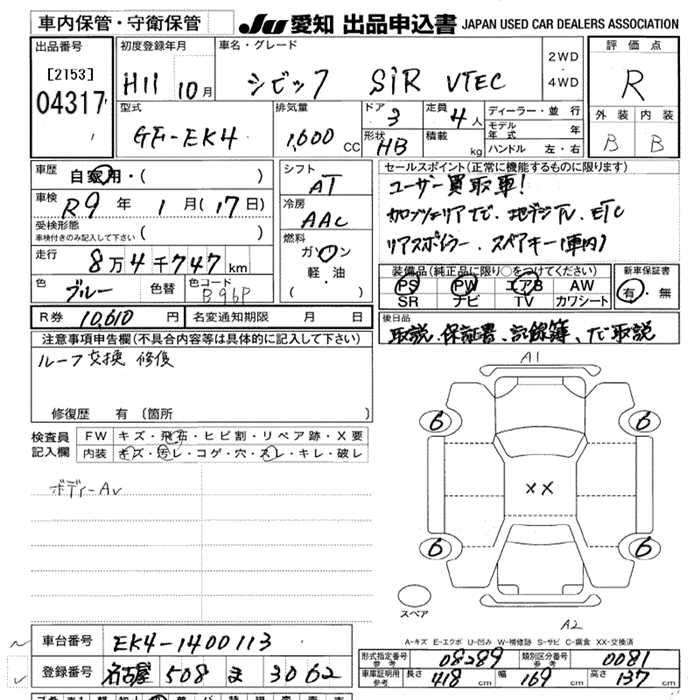 車内保管・守衛保管 JU 愛知 出品申込書 JAPAN USED CAR DEALERS ASSOCIATION
出品番号 初度登録年月 車名・グレード 評価点
[2153] H11 10月 シビック SiR VTEC 2WD・4WD R
04317
型式 排気量 ドア 3 定員 4人 ディーラー・並行 外装 内装
GF-EK4 1,600 CC 形状 HB 積載 kg モデル年式 年 B B
ハンドル 左・右
車歴 自家用・( ) シフト AT セールスポイント(正常に機能するものに限ります)
車検 R9年 1月(17日) 冷房 AAC ユーザー買取車!
受検形態 ( ) カロッツェリアナビ、地デジTV、ETC
車検付きのみ記入して下さい
走行 8万4千747km 燃料 ガソリン リアスポイラー、スペアキー(車内)
軽・油
( )
色 ブルー 色替 色コード B96P 装備品(純正品に限り○をつけてください) 新車保証書
PS PW エアB AW 有・無
SR ナビ TV カワシート
R券 10,610円 名変通知期限 月 日 後日品
取説、保証書、記録簿、ナビ取説
注意事項申告欄(不具合内容等は具体的に記入して下さい)
ルーフ交換 修復
修復歴 有(箇所
検査員記入欄 FW キズ・飛石・ヒビ割・リペア跡・X要
内装 キズ・汚レ・コゲ・穴・スレ・キレ・破レ
ボディーAv
A1
6 6
XX
6 6
スペア
A2
A-キズ E-エクボ U-凹み W-補修跡 S-サビ C-腐食 XX-交換済
車台番号 EK4-1400113
登録番号 名古屋 508 ま 3062
形式指定番号 参考 08289 類別区分番号 参考 0081
車庫証明用 参考 長さ 418cm 幅 169cm 高さ 137cm